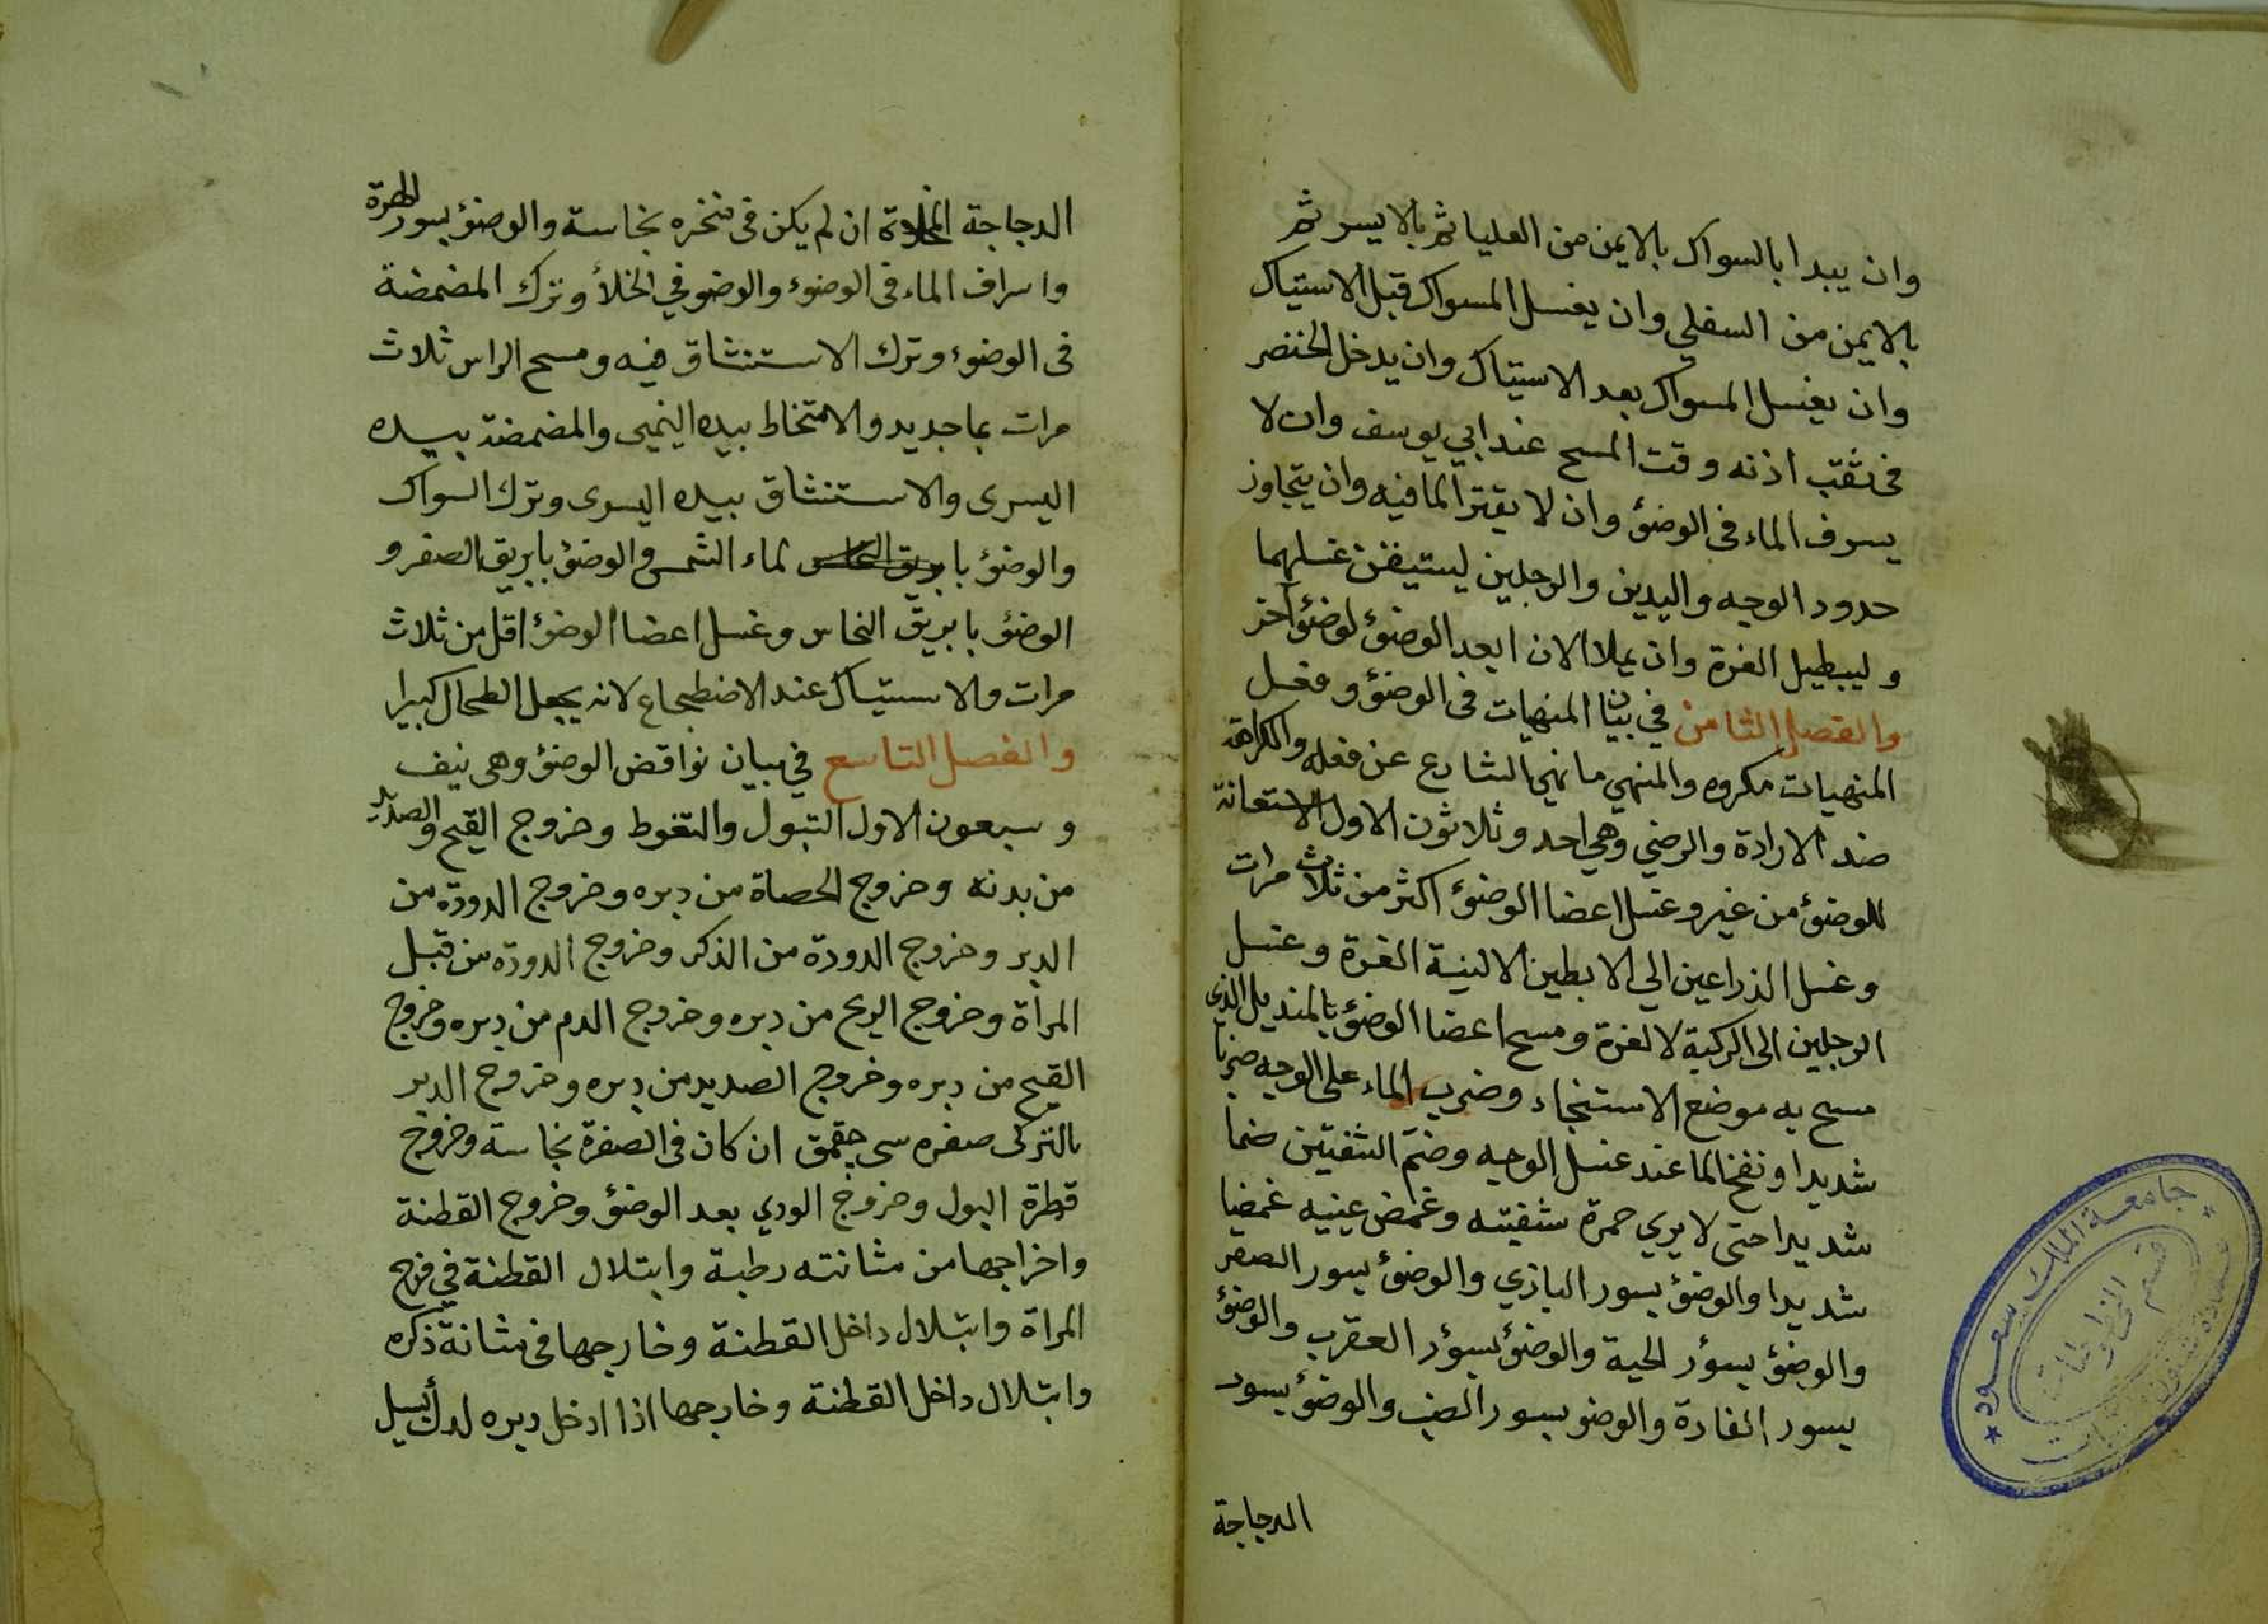 وان يبدا بالسواك بالايمن من العليا ثم بالايسر ثم
بالايمن من السفلي وان يغسل المسواك قبل الاستياك
وان يغسل المسواك بعد الاستياك وان يدخل الخنصر
فى ثقب اذنه وقت المسح عند ابي يوسف وان لا
يسرف الماء فى الوضؤ وان لا يقتر الما فيه وان يتجاوز
حدود الوجه واليدين والرجلين ليستيقن غسلهما
وليطيل الغرة وان يملا الانا بعد الوضؤ لوضؤ آخر
والفصل الثامن في بيان المنهيات فى الوضؤ وفعل
المنهيات مكروه والمنهي ما نهي الشارع عن فعله والكراهة
ضد الارادة والرضي وهي احد وثلاثون الاول الاستعانة
للوضؤ من غير وغسل اعضا الوضؤ اكثر من ثلاث مرات
وغسل الذراعين الي الابطين الا لنية الغرة وغسل
الرجلين الى الركبة لا لغرة ومسح اعضا الوضؤ بالمنديل الذى
مسح به موضع الاستنجاء وضرب الماء على الوجه ضربا
شديدا ونفخ الما عند غسل الوجه وضم الشفتين ضما
شديدا حتى لا يري حمرة شفيته وغمض عينيه غمضا
شديدا والوضؤ بسور البازي والوضؤ بسور الصقر
والوضؤ بسؤر الحية والوضؤ بسؤر العقرب والوضؤ
بسور الفارة والوضو بسور الضب والوضؤ بسور
الدجاجة
الدجاجة المخلاة ان لم يكن فى منخره نجاسة والوضؤ بسور الهرة
واسراف الماء فى الوضوء والوضو في الخلأ وترك المضمضة
فى الوضوء وترك الاستنشاق فيه ومسح الراس ثلاث
مرات بما جديد والامتخاط بيده اليميى والمضمضة بيده
اليسرى والاستنشاق بيده اليسرى وترك السواك
والوضؤ با لماء الشمس والوضؤ بابريق الصفر و
الوضؤ بابريق النحاس وغسل اعضا الوضؤ اقل من ثلاث
مرات والاستياك عند الاضطجاع لانه يجعل الطحال كبيرا
والفصل التاسع في بيان نواقض الوضؤ وهى نيف
وسبعون الاول التبول والتغوط وخروج القيح والصديد
من بدنه وخروج الحصاة من دبره وخروج الدودة من
الدبر وخروج الدودة من الذكر وخروج الدودة من قبل
المرأة وخروج الريح من دبره وخروج الدم من دبره وخروج
القيح من دبره وخروج الصديد من دبره وخروج الدبر
بالتركى صفره سى جقمق ان كان فى الصفرة نجاسة وخروج
قطرة البول وخروج الودي بعد الوضؤ وخروج القطنة
واخراجها من مثانته رطبة وابتلال القطنة في فرج
المراة وابتلال داخل القطنة وخارجها فى مثانة ذكره
وابتلال داخل القطنة وخارجها اذا ادخل دبره
جامعة الملك سعود
قسم المخطوطات